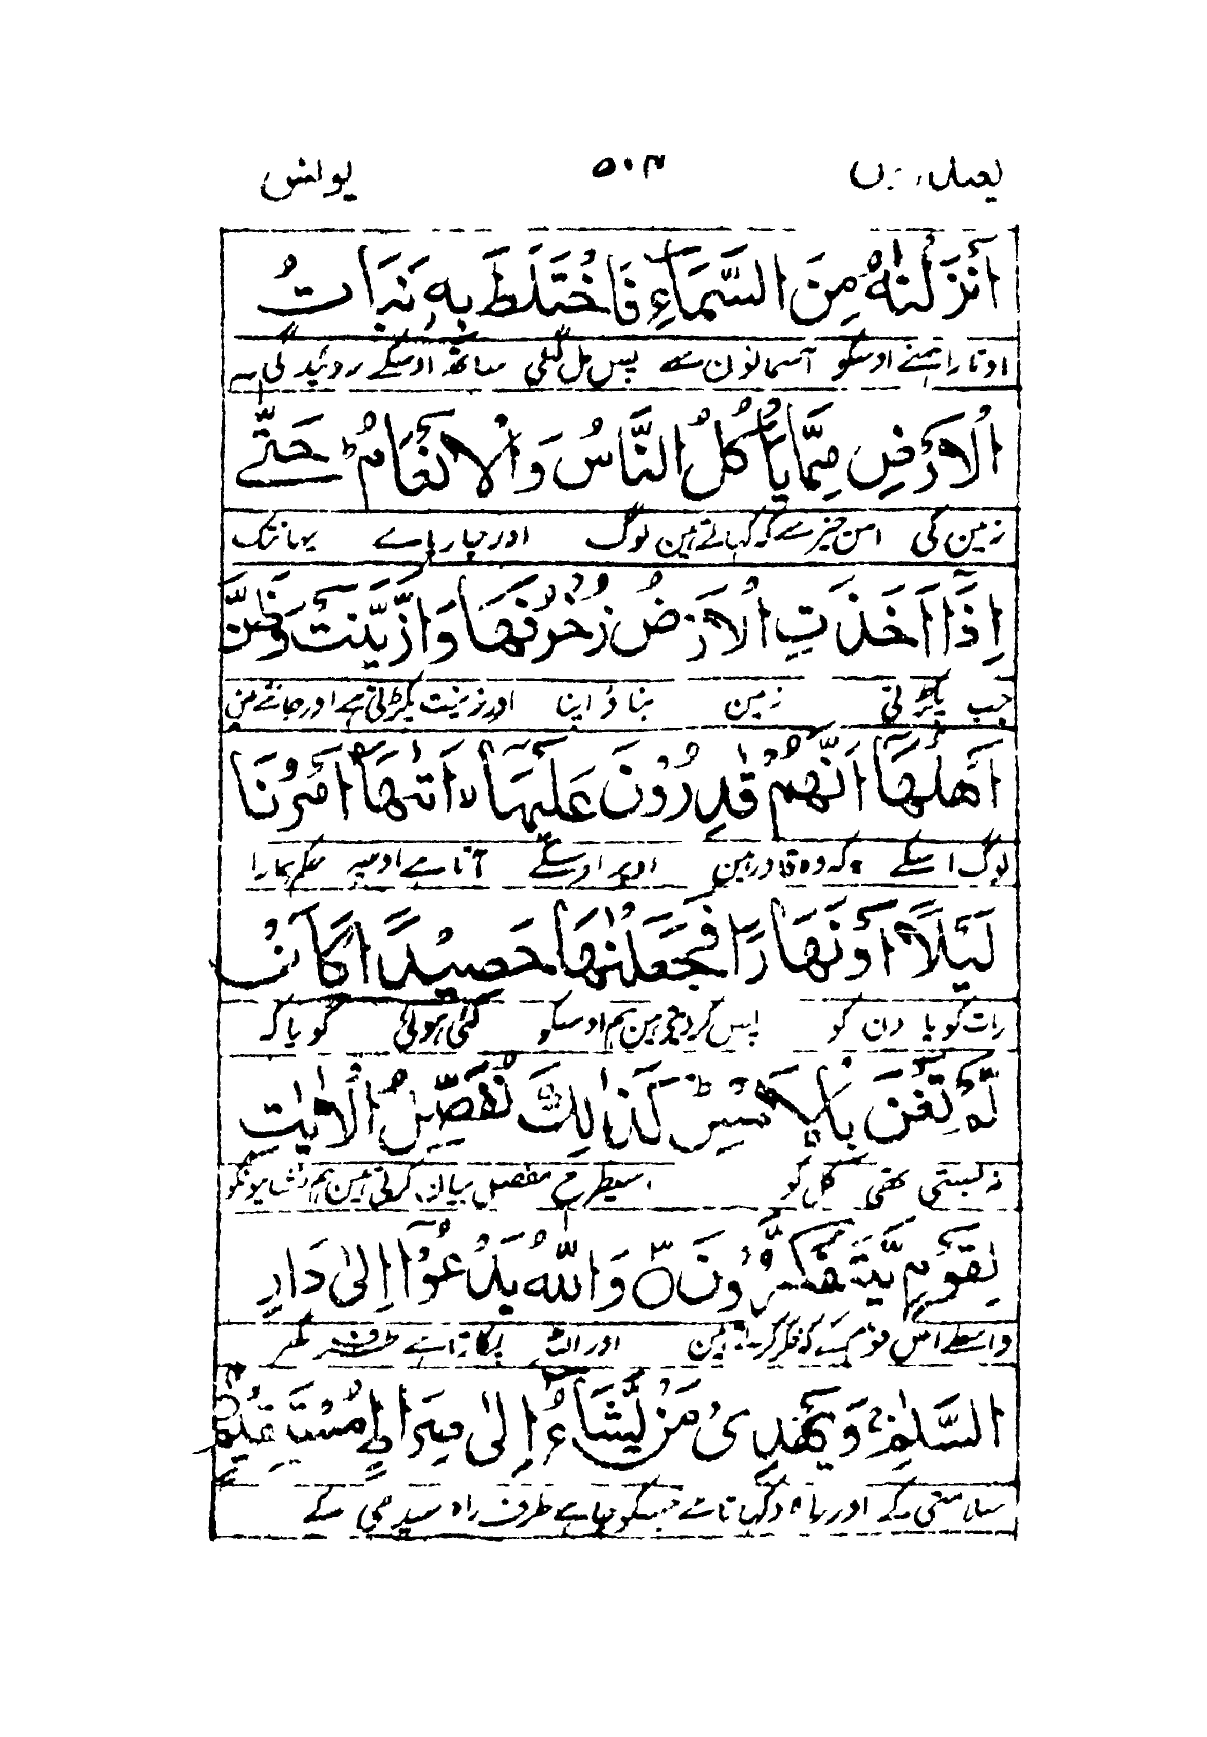 یونس ۵۰۴
اَنْزَلْنٰهُ مِنَ السَّمَآءِ فَاخْتَلَطَ بِهٖ نَبَاتُ
اوتارا ہمنے اوسکو آسمانون سے پس مل گئی ساتھ اوسکے روئیدگی
الْاَرْضِ مِمَّا یَاْكُلُ النَّاسُ وَالْاَنْعَامُ ؕ حَتّٰۤی
زمین کی اس چیز سے کہ کہاتے ہین لوگ اور چارپاے یہانتک
اِذَاۤ اَخَذَتِ الْاَرْضُ زُخْرُفَهَا وَازَّیَّنَتْ وَظَنَّ
جب پکڑتی زمین بناؤ اپنا اور زینت پکڑتی ہے اور جانتے ہین
اَهْلُهَاۤ اَنَّهُمْ قٰدِرُوْنَ عَلَیْهَاۤ ۙ اَتٰىهَاۤ اَمْرُنَا
لوگ اسکے کہ وہ قادر ہین اوپر اوسکے آتا ہے اوسپہ حکم ہمارا
لَیْلًا اَوْ نَهَارًا فَجَعَلْنٰهَا حَصِیْدًا كَاَنْ
رات کو یا دن کو پس کردیتے ہین ہم اوسکو کٹی ہوئی گویا کہ
لَّمْ تَغْنَ بِالْاَمْسِ ؕ كَذٰلِكَ نُفَصِّلُ الْاٰیٰتِ
نہ بستی تھی کل کو اسیطرح مفصل بیان کرتے ہین ہم نشانیونکو
لِقَوْمٍ یَّتَفَكَّرُوْنَ ۝ وَاللّٰهُ یَدْعُوْۤا اِلٰی دَارِ
واسطے اس قوم کے کہ فکر کرتے ہین اور اللہ پکارتا ہے طرف گھر
السَّلٰمِ ؕ وَیَهْدِیْ مَنْ یَّشَآءُ اِلٰی صِرَاطٍ مُّسْتَقِیْمٍ ۝
سلامتی کے اور راہ دکہاتا ہے جسکو چاہے طرف راہ سیدھی کے